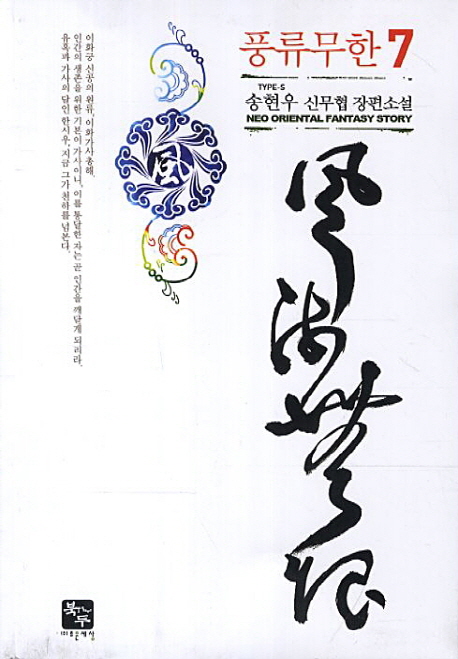 풍류무한 7
TYPE-S
송현우 신무협 장편소설
NEO ORIENTAL FANTASY STORY
風流無限
風
이화궁 신공의 원류, 이화가사총해.
인간의 생존을 위한 기본이 가사이니, 이를 통달한 자는 곧 인간을 깨닫게 되리라.
유혹과 가사의 달인 한시우, 지금 그가 천하를 넘본다.
북두